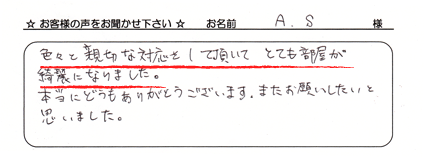 ☆ お客様の声をお聞かせ下さい ☆ お名前 A.S 様
色々と親切な対応をして頂いて とても部屋が
綺麗になりました。
本当にどうもありがとうございます。またお願いしたいと
思いました。